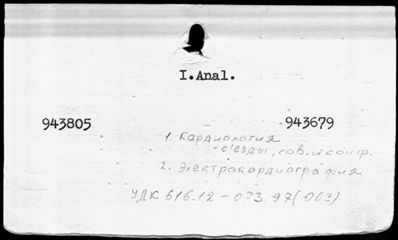 I.Anal.
943805 943679
1. Кардиология
- с'езды, сов. и конф.
2. Электрокардиография
УДК 616.12-073.97(063)